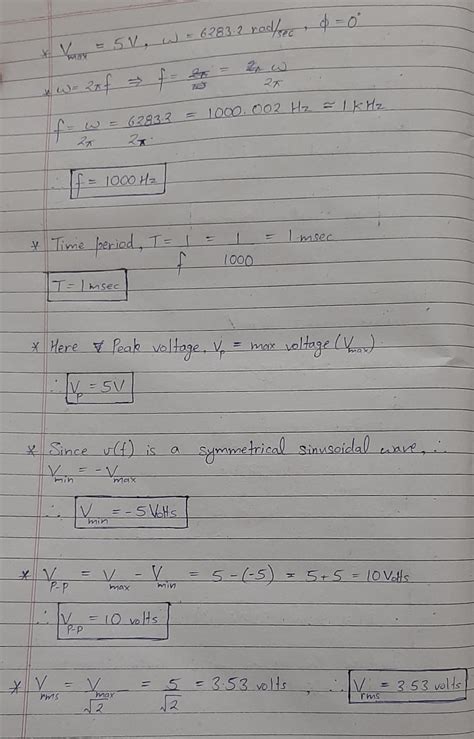 * Vmax = 5V, ω = 6283.2 rad/sec, φ = 0°
* ω = 2πf ⇒ f = ω/2π
f = ω/2π = 6283.2/2π = 1000.002 Hz ≈ 1 kHz
∴ f = 1000 Hz
* Time period, T = 1/f = 1/1000 = 1 msec
T = 1 msec
* Here Peak voltage, Vp = max voltage (Vmax)
∴ Vp = 5V
* Since v(f) is a symmetrical sinusoidal wave, ∴
Vmin = -Vmax
∴ Vmin = -5 Volts
* Vp-p = Vmax - Vmin = 5-(-5) = 5+5 = 10 Volts
∴ Vp-p = 10 volts
* Vrms = Vmax/√2 = 5/√2 = 3.53 volts, ∴ Vrms = 3.53 volts